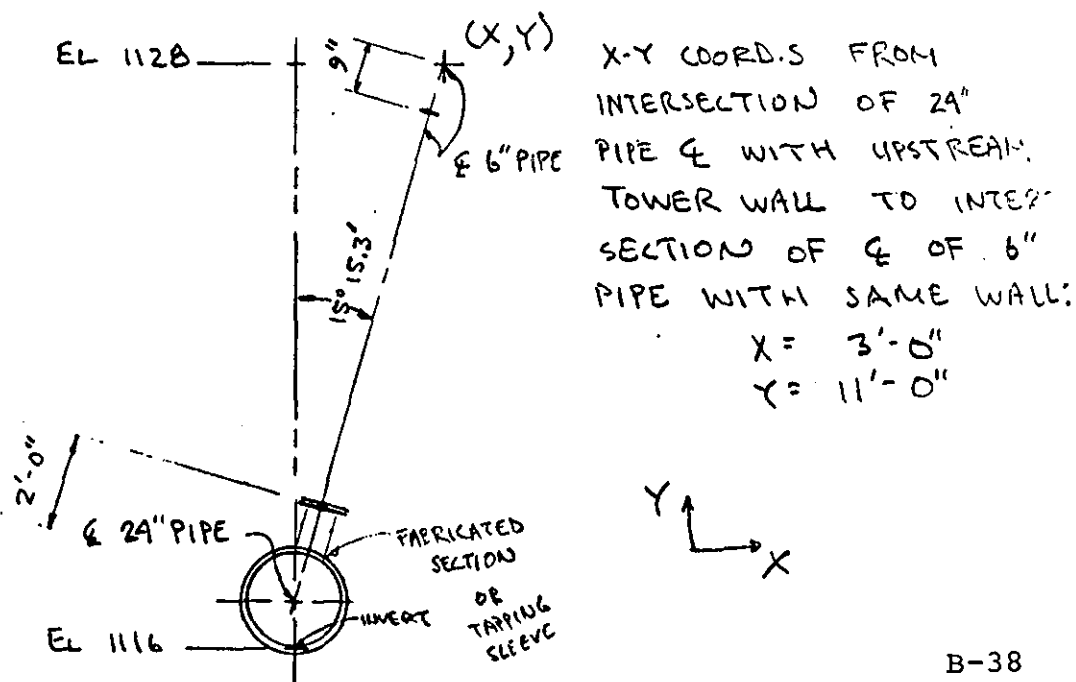 EL 1128
9"
(X,Y)
℄ 6" PIPE
15° 15.3'
2'-0"
℄ 24" PIPE
FABRICATED
SECTION
OR
TAPPING
SLEEVE
INVERT
EL 1116
X-Y COORD.S FROM
INTERSECTION OF 24"
PIPE ℄ WITH UPSTREAM
TOWER WALL TO INTER-
SECTION OF ℄ OF 6"
PIPE WITH SAME WALL:
X = 3'-0"
Y = 11'-0"
Y
X
B-38